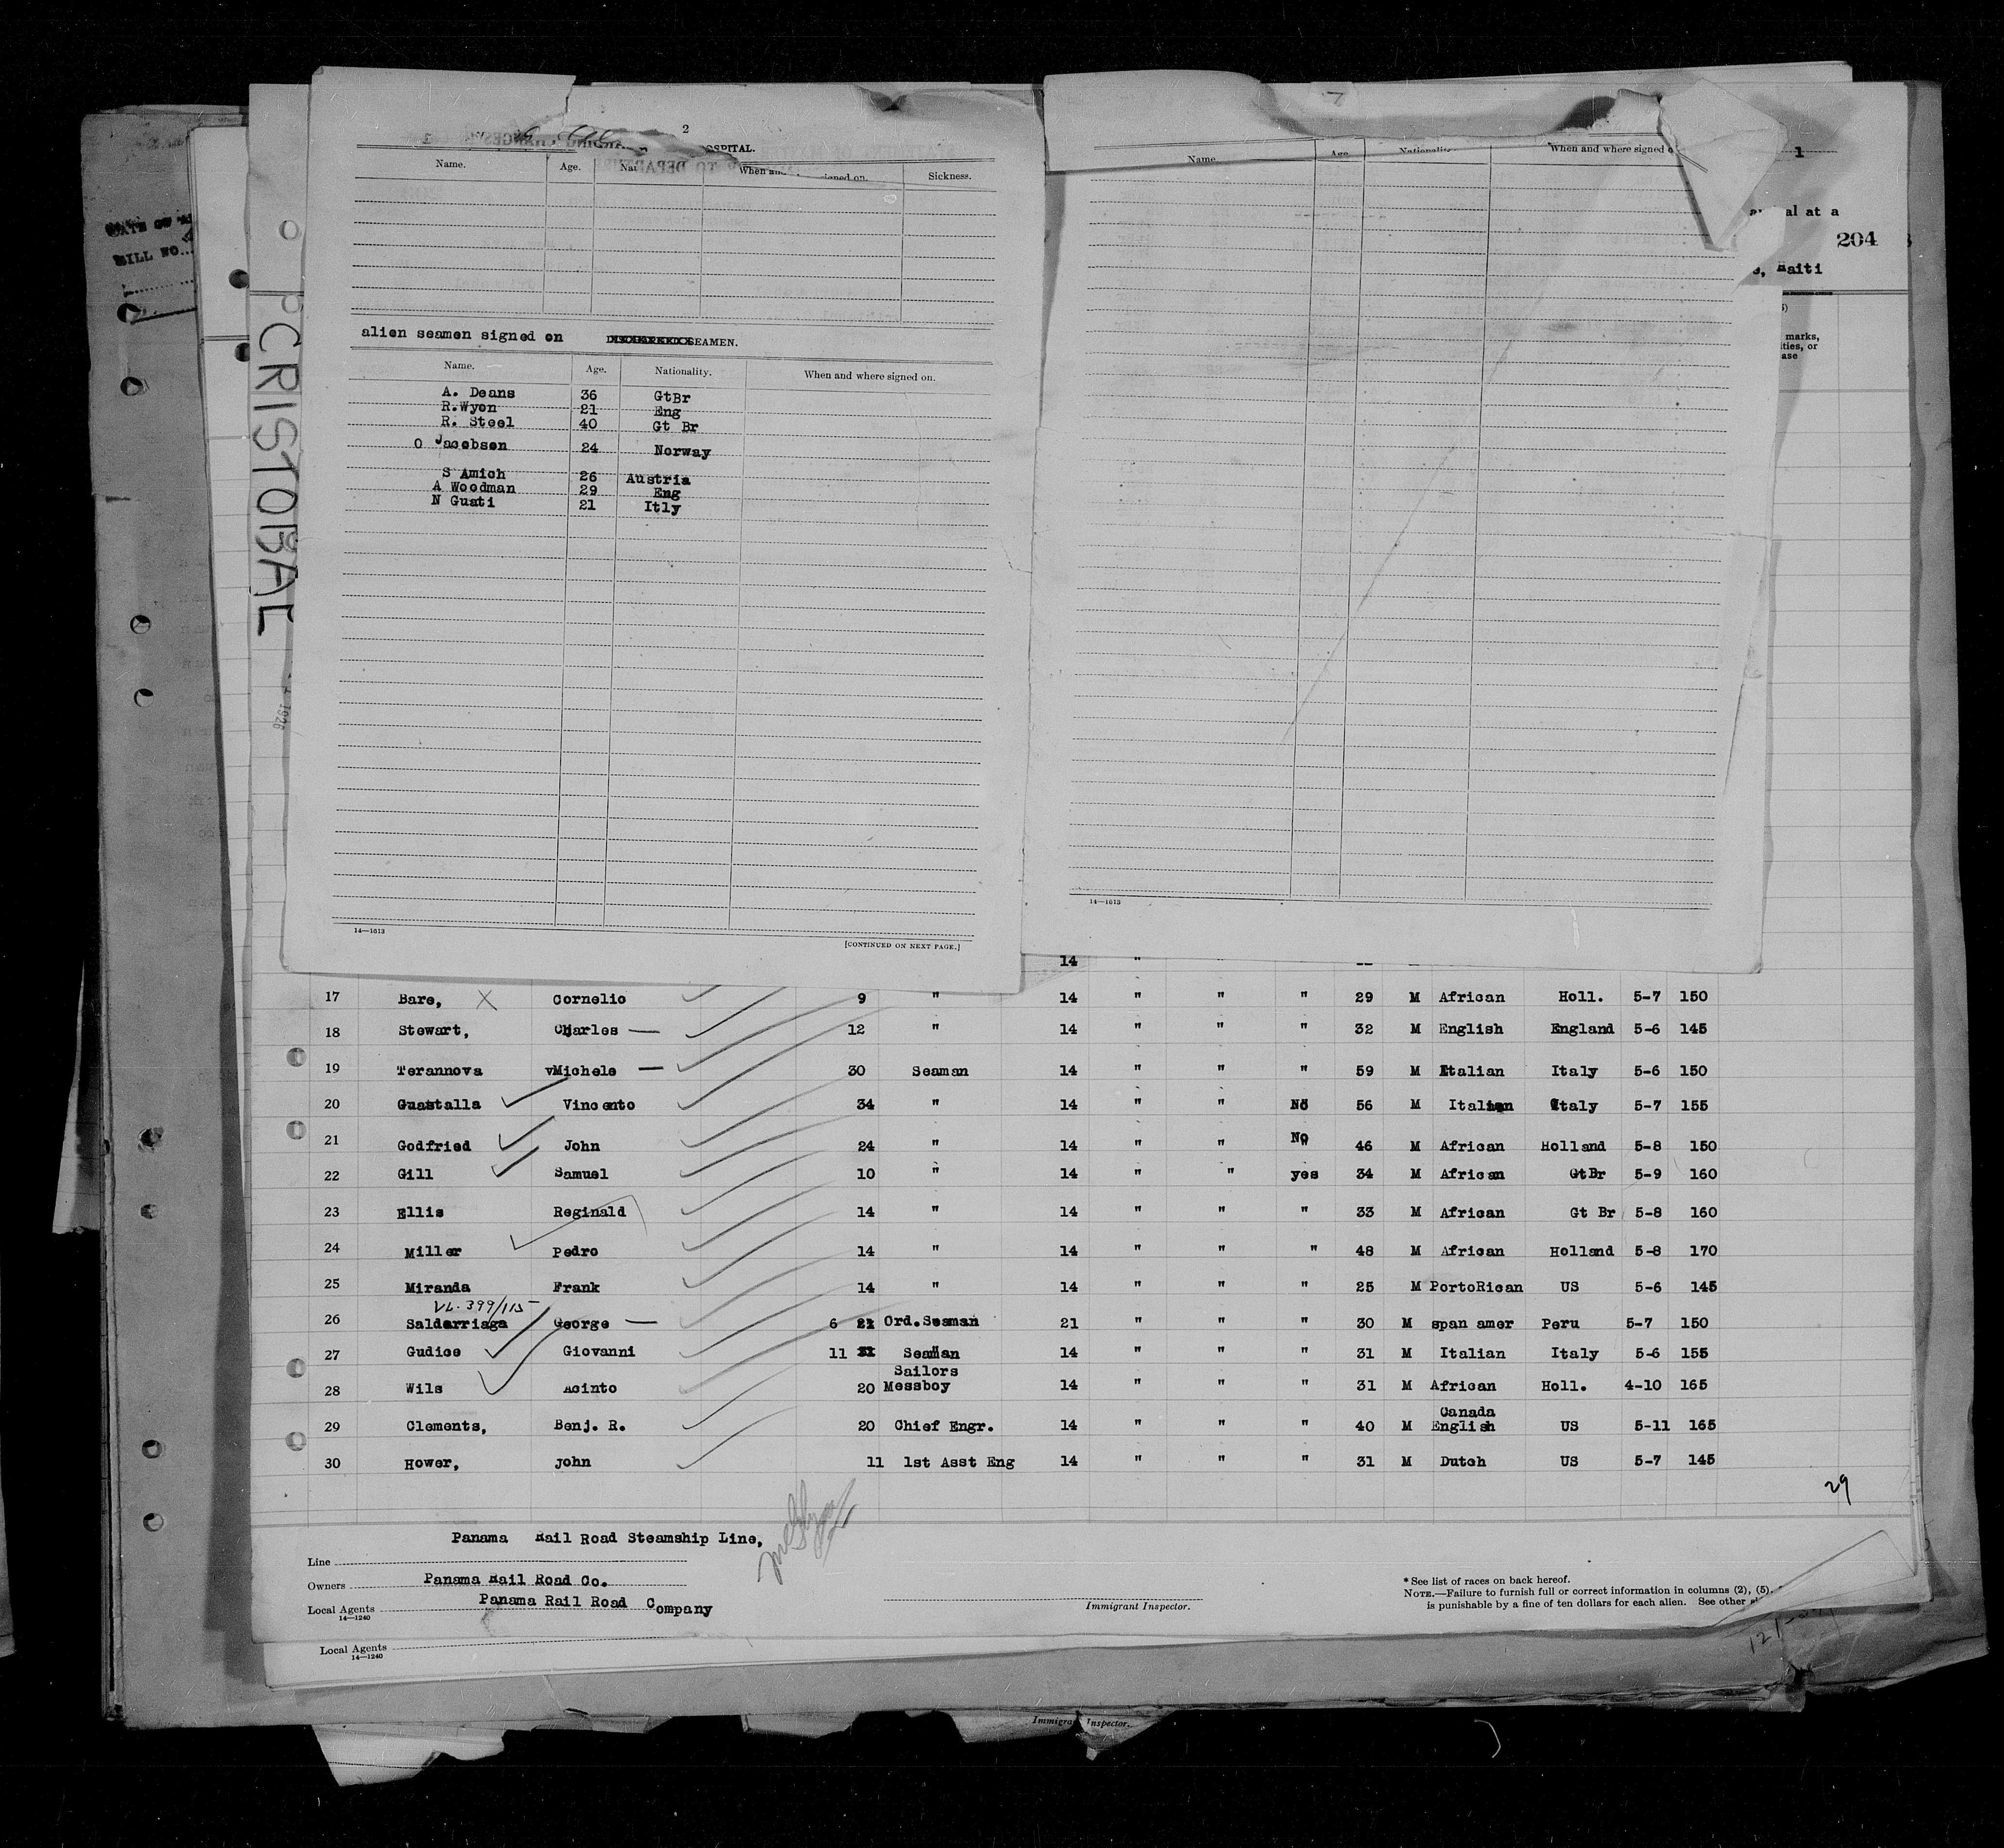 2
HOSPITAL.
Name. Age. When and signed on. Sickness.
alien seamen signed on SEAMEN.
Name. Age. Nationality. When and where signed on.
A. Deans 36 GtBr
R.Wyon 21 Eng
R. Steel 40 Gt Br
O Jacobsen 24 Norway
S Amich 26 Austria
A Woodman 29 Eng
N Guati 21 Itly
14—1613
[CONTINUED ON NEXT PAGE.]
Name Age Nationality When and where signed o
14—1613
1
al at a
204
, Haiti
marks,
ities, or
ase
CRISTOBAL
1926
BILL NO.
14 "
17 Bare, X Cornelio 9 " 14 " " " 29 M African Holl. 5-7 150
18 Stewart, Charles — 12 " 14 " " " 32 M English England 5-6 145
19 Terannova vMichele — 30 Seaman 14 " " " 59 M Italian Italy 5-6 150
20 Guastalla Vincento 34 " 14 " " No 56 M Italian Italy 5-7 155
21 Godfried John 24 " 14 " " No 46 M African Holland 5-8 150
22 Gill Samuel 10 " 14 " " yes 34 M African GtBr 5-9 160
23 Ellis Reginald 14 " 14 " " " 33 M African Gt Br 5-8 160
24 Miller Pedro 14 " 14 " " " 48 M African Holland 5-8 170
25 Miranda Frank 14 " 14 " " " 25 M PortoRican US 5-6 145
VL. 399/115
26 Saldarriaga George — 6 21 Ord.Seaman 21 " " " 30 M span amer Peru 5-7 150
27 Gudice Giovanni 11 31 Seaman 14 " " " 31 M Italian Italy 5-6 155
Sailors
28 Wils Acinto 20 Messboy 14 " " " 31 M African Holl. 4-10 165
Canada
29 Clements, Benj. R. 20 Chief Engr. 14 " " " 40 M English US 5-11 165
30 Hower, John 11 1st Asst Eng 14 " " " 31 M Dutch US 5-7 145
29
Panama Rail Road Steamship Line,
Line
Owners Panama Rail Road Co.
Local Agents Panama Rail Road Company
14—1240
Immigrant Inspector.
* See list of races on back hereof.
NOTE.—Failure to furnish full or correct information in columns (2), (5),
is punishable by a fine of ten dollars for each alien. See other
Local Agents
14—1240
Immigrant Inspector.